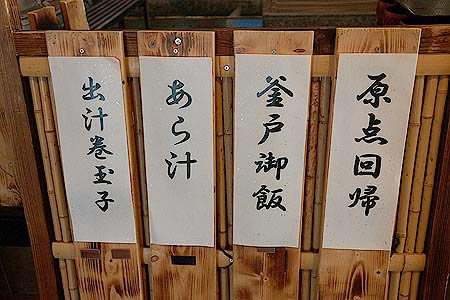 原点回帰
釜戸御飯
あら汁
出汁巻玉子